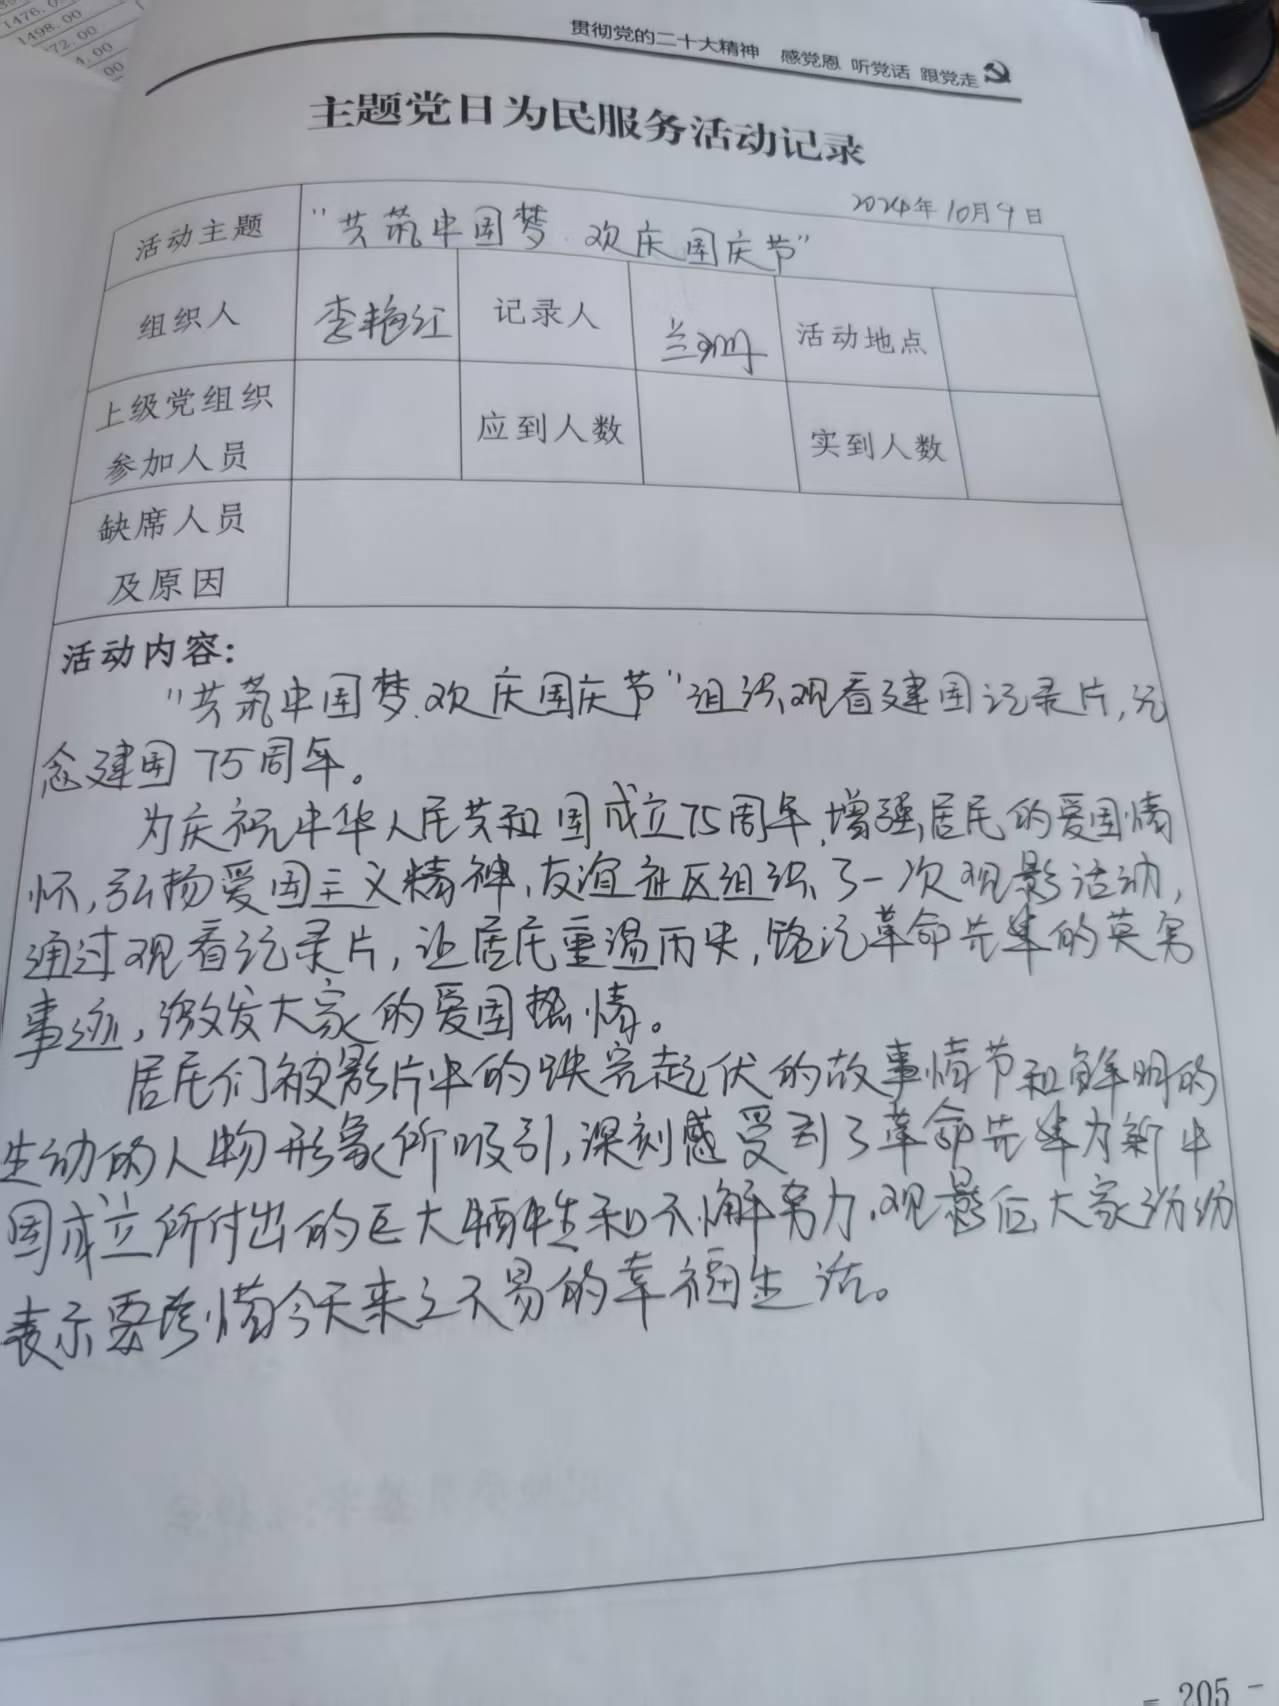 1476.0
1498.00
72.00
4.00
00
贯彻党的二十大精神 感党恩 听党话 跟党走
主题党日为民服务活动记录
2024年10月9日
活动主题 "共筑中国梦 欢庆国庆节"
组织人 李艳红 记录人 兰 活动地点
上级党组织
参加人员 应到人数 实到人数
缺席人员
及原因
活动内容：
"共筑中国梦.欢庆国庆节"组织观看建国记录片,
念建国75周年。
为庆祝中华人民共和国成立75周年,增强居民的爱国情
怀,弘扬爱国主义精神,友谊社区组织了一次观影活动,
通过观看记录片,让居民重温历史,铭记革命先辈的英勇
事迹,激发大家的爱国热情。
居民们被影片中的跌宕起伏的故事情节和鲜明的
生动的人物形象所吸引,深刻感受到了革命先辈为新中
国成立所付出的巨大牺牲和不懈努力.观影后大家纷纷
表示要珍惜今天来之不易的幸福生活。
- 205 -